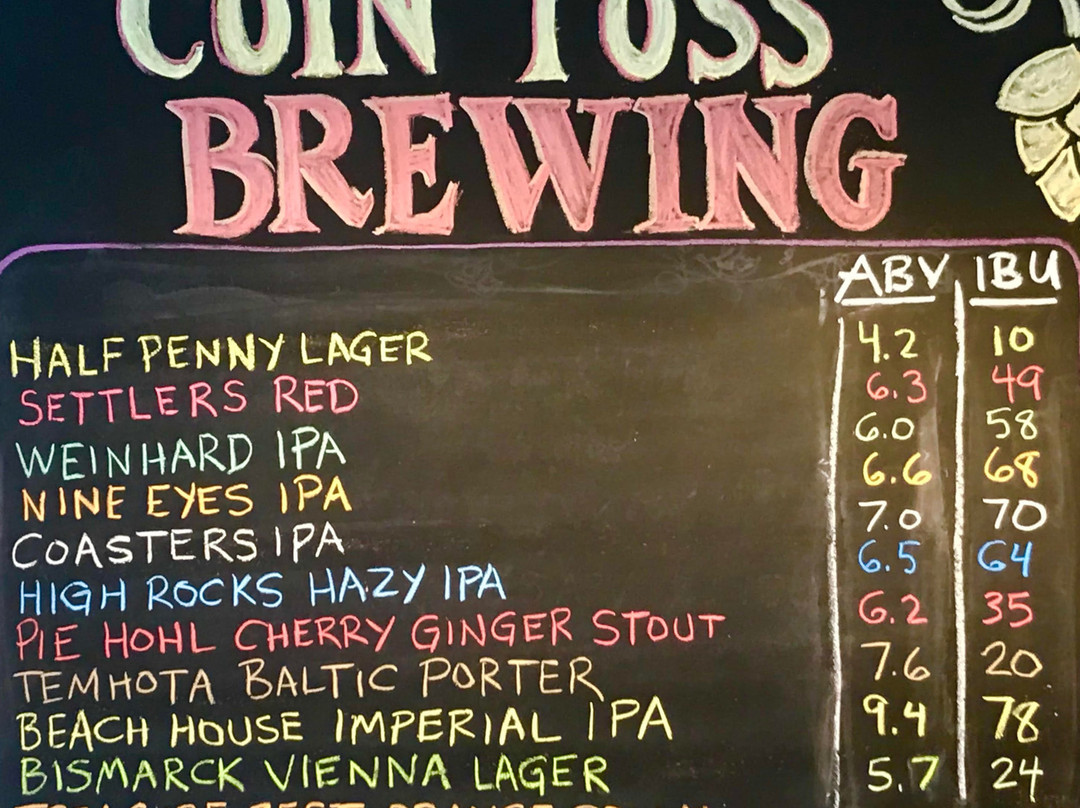 COIN TOSS
BREWING
ABV IBU
HALF PENNY LAGER 4.2 10
SETTLERS RED 6.3 49
WEINHARD IPA 6.0 58
NINE EYES IPA 6.6 68
COASTERS IPA 7.0 70
HIGH ROCKS HAZY IPA 6.5 64
PIE HOHL CHERRY GINGER STOUT 6.2 35
TEMHOTA BALTIC PORTER 7.6 20
BEACH HOUSE IMPERIAL IPA 9.4 78
BISMARCK VIENNA LAGER 5.7 24